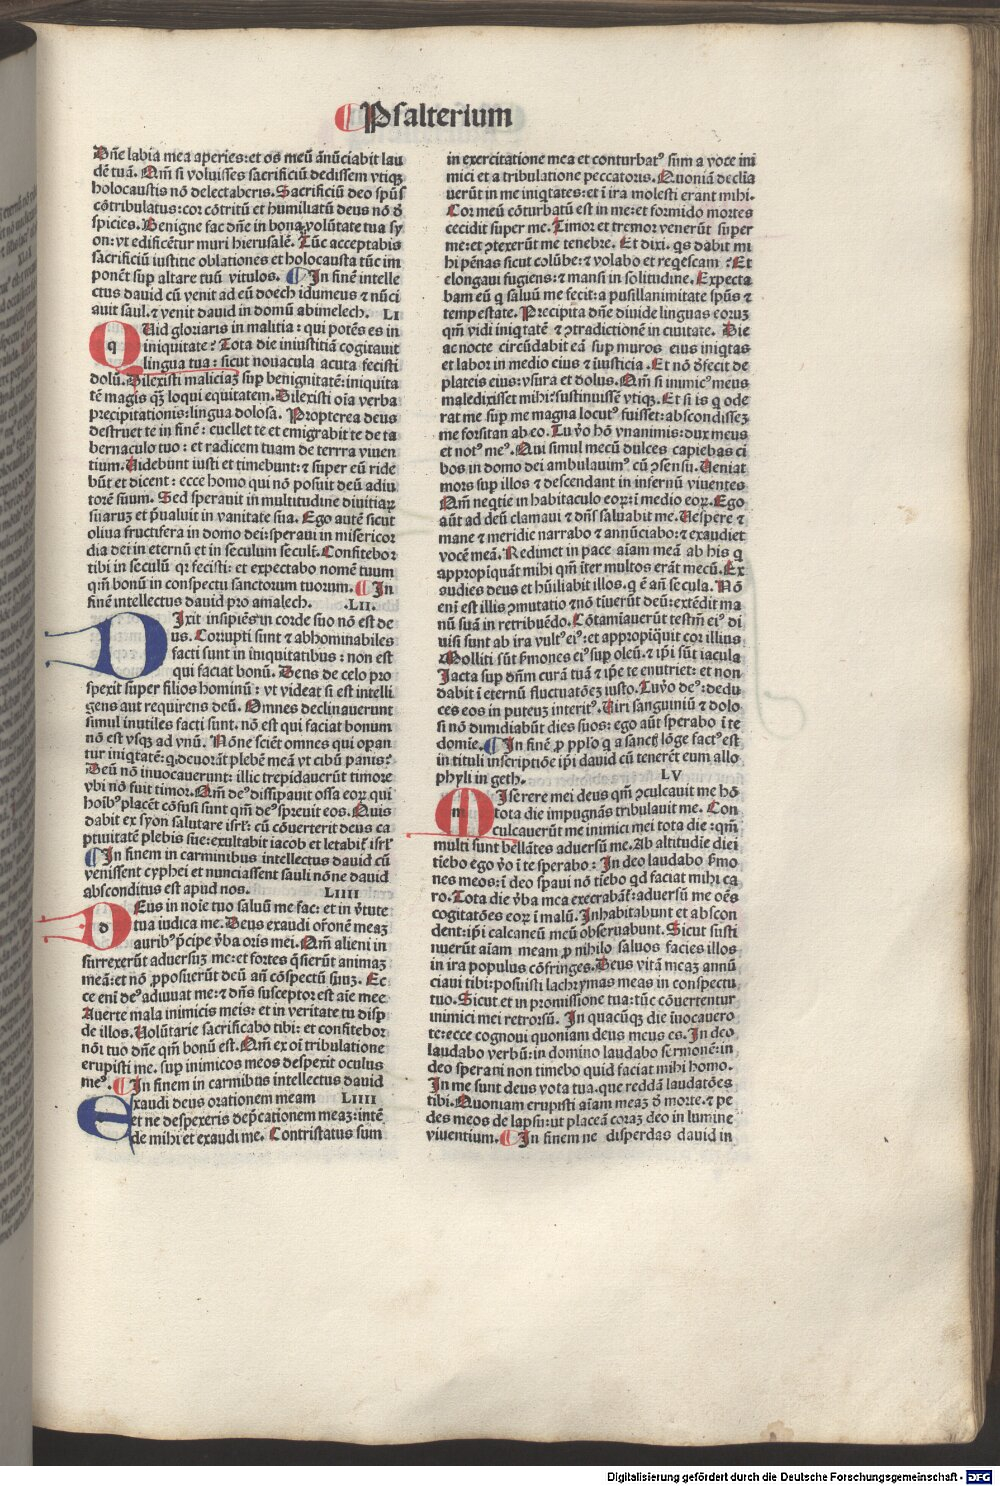 Psalterium
Dñe labia mea aperies: et os meū ānūciabit lau
dē tuā. Qm̄ si voluisses sacrificiū dedissem vtiqꝫ
holocaustis nō delectaberis. Sacrificiū deo spūs
cōtribulatus: cor cōtritū et humiliatū deus nō ð
spicies. Benigne fac dñe in bona volūtate tua sy
on: vt edificētur muri hierusalē. Tūc acceptabis
sacrificiū iustitie oblationes et holocausta tūc im
ponēt sup altare tuū vitulos. In finē intelle
ctus dauid cū venit ad eū doech idumeus ⁊ nūci
auit saul. ⁊ venit dauid in domū abimelech. LI
QUid gloriaris in malitia: qui potēs es in
iniquitate? Tota die iniustitiā cogitauit
lingua tua: sicut nouacula acuta fecisti
dolū. Dilexisti maliciaꝫ sup benignitatē: iniquita
tē magis qꝫ loqui equitatem. Dilexisti oīa verba
precipitationis: lingua dolosa. Propterea deus
destruet te in finē: euellet te et emigrabit te de ta
bernaculo tuo: et radicem tuam de terrra viuen
tium. Videbunt iusti et timebunt: ⁊ super eū ride
būt et dicent: ecce homo qui nō posuit deū adiu
torē suum. Sed sperauit in multitudine diuitiaꝝ
suaruꝫ et p̄ualuit in vanitate sua. Ego autē sicut
oliua fructifera in domo dei: speraui in misericor
dia dei in eternū et in seculum seculi. Confitebor
tibi in seculū qr fecisti: et expectabo nomē tuum
qm̄ bonū in conspectu sanctorum tuorum. In
finē intellectus dauid pro amalech. .LII.
DIxit insipiēs in corde suo nō est de
us. Corupti sunt ⁊ abhominabiles
facti sunt in iniquitatibus: non est
qui faciat bonū. Deus de celo pro
spexit super filios hominū: vt videat si est intelli
gens aut requirens deū. Omnes declinauerunt
simul inutiles facti sunt. nō est qui faciat bonum
nō est vsqꝫ ad vnū. Nōne sciēt omnes qui opan
tur iniqtatē: q̄ deuorāt plebē meā vt cibū panis?
Deū nō inuocauerunt: illic trepidauerūt timore
vbi nō fuit timor. Qm̄ de⁹ dissipauit ossa eoꝝ qui
hoibꝰ placēt cōfusi sunt qm̄ de⁹ spreuit eos. Quis
dabit ex syon salutare isrl: cū cōuerterit deus ca
ptiuitatē plebis sue: exultabit iacob et letabit̄ isrl
In finem in carminibus intellectus dauid cū
venissent cyphei et nunciassent sauli nōne dauid
absconditus est apud nos. LIIII
DEus in noie tuo saluū me fac: et in v̓tute
tua iudica me. Deus exaudi or̄onē meaꝫ
auribꝰ p̄cipe v̓ba oris mei. Qm̄ alieni in
surrexerūt aduersuꝫ me: et fortes q̄sierūt animaꝫ
meā: et nō ꝓposuerūt deū añ cōspectū suuꝫ. Ec
ce eni de⁹ adiuuat me: ⁊ dñs susceptor est aīe mee
Auerte mala inimicis meis: et in veritate tu disp
de illos. Volūtarie sacrificabo tibi: et confitebor
nōi tuo dñe qm̄ bonū est. Qm̄ ex oī tribulatione
erupisti me. sup inimicos meos despexit oculus
me⁹. In finem in carmibus intellectus dauid
Exaudi deus orationem meam LIIII
et ne despexeris dep̄cationem meaꝫ: intē
de mihi et exaudi me. Contristatus sum
in exercitatione mea et conturbatꝰ sum a voce ini
mici et a tribulatione peccatoris. Quoniā declīa
uerūt in me iniqtates: et ī ira molesti erant mihi.
Cor meū cōturbatū est in me: et formido mortes
cecidit super me. Timor et tremor venerūt super
me: et ꝯtexerūt me tenebre. Et dixi. qs dabit mi
hi pēnas sicut colūbe: ⁊ volabo et reqescam? Et
elongaui fugiens: ⁊ mansi in solitudine. Expecta
bam eū q̄ saluū me fecit: a pusillanimitate spūs ⁊
tempestate. Precipita dñe diuide linguas eoruꝫ
qm̄ vidi iniqtatē ⁊ ꝯtradictionē in ciuitate. Die
ac nocte circūdabit eā sup muros eius iniqtas
et labor in medio eius ⁊ iusticia. Et nō ðfecit de
plateis eius: vsura et dolus. Qm̄ si inimicꝰ meus
maledixisset mihi: sustinuissē vtiqꝫ. Et si is q̄ ode
rat me sup me magna locutꝰ fuisset: abscondisseꝫ
me forsitan ab eo. Tu v̓o hō vnanimis: dux meus
et notꝰ me⁹. Qui simul mecū dulces capiebas ci
bos in domo dei ambulauimꝰ cū ꝯsensu. Ueniat
mors sup illos ⁊ descendant in infernū viuentes
Qm̄ neqtie in habitaculo eoꝝ: ī medio eoꝝ. Ego
aūt ad deū clamaui ⁊ dñs saluabit me. Vespere ⁊
mane ⁊ meridie narrabo ⁊ annūciabo: ⁊ exaudiet
vocē meā. Redimet in pace aīam meā ab his q̄
appropiquāt mihi qm̄ īter multos erāt mecū. Ex
audies deus et hūiliabit illos. q̄ ē añ secula. Nō
enī est illis ꝯmutatio ⁊ nō tiuerūt deū: extēdit ma
nū suā in retribuēdo. Cōtamīauerūt testm̄ eiꝰ di
uisi sunt ab ira vultꝰ eiꝰ: et appropīquit cor illius
Molliti sūt ẜmones eiꝰ sup oleū. ⁊ ip̄i sūt iacula
Jacta sup dñm curā tuā ⁊ ip̄e te enutriet: et non
dabit ī eternū fluctuatōeꝫ iusto. Tu v̓o de⁹: dedu
ces eos in puteuꝫ interitꝰ. Viri sanguinū ⁊ dolo
si nō dimidiabūt dies suos: ego aūt sperabo ī te
domīe. In finē ꝓ pplo q̄ a sanctꝭ lōge factꝰ est
in tituli inscriptiōe ip̄i dauid cū tenerēt eum allo
phyli in geth. LV
MIserere mei deus qm̄ ꝯculcauit me hō
tota die impugnās tribulauit me. Con
culcauerūt me inimici mei tota die: qm̄
multi sunt bellātes aduersū me. Ab altitudīe diei
tīebo ego v̓o ī te sperabo: In deo laudabo ẜmo
nes meos: ī deo spaui nō tīebo qd faciat mihi ca
ro. Tota die v̓ba mea execrabāt̄: aduersū me oēs
cogitatōes eoꝝ ī malū. Inhabitabunt et abscon
dent: ip̄i calcaneū meū obseruabunt. Sicut susti
nuerūt aīam meam ꝓ nihilo saluos facies illos
in ira populus cōfringes. Deus vitā meaꝫ annū
ciaui tibi: posuisti lachrymas meas in conspectu
tuo. Sicut et in promissione tua: tūc cōuertentur
inimici mei retrorsū. In quacūqꝫ die īuocauero
te: ecce cognoui quoniam deus meus es. In deo
laudabo verbū: in domino laudabo sermonē: in
deo speraui non timebo quid faciat mihi homo.
In me sunt deus vota tua. que reddā laudatōes
tibi. Quoniam erupisti aīam meaꝫ ð morte. ⁊ pe
des meos de lapsu: ut placeā coraꝫ deo in lumine
viuentium. In finem ne disperdas dauid in
Digitalisierung gefördert durch die Deutsche Forschungsgemeinschaft - DFG